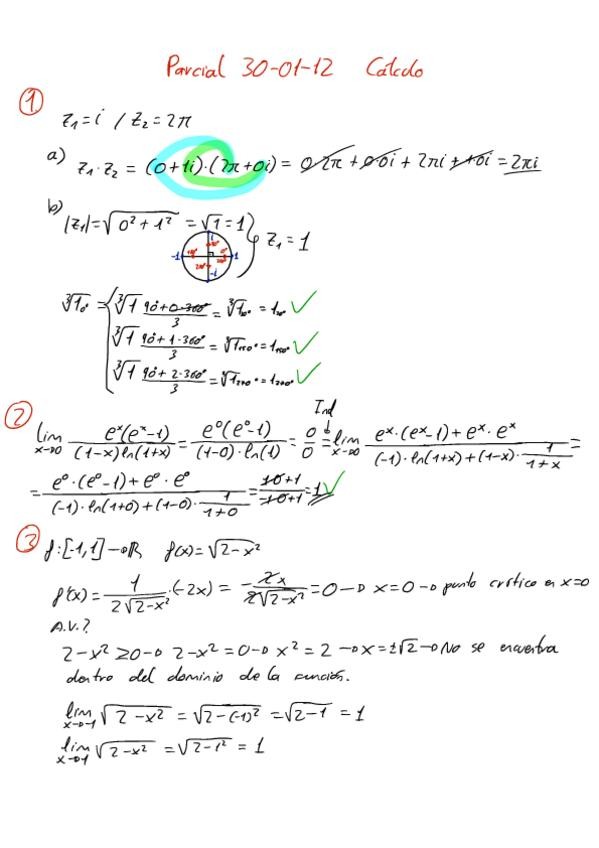 Parcial 30-01-12 Cálculo
① z₁ = i / z₂ = 2π
a) z₁·z₂ = (0+1i)·(2π+0i) = 0·2π + 0·0i + 2πi + 0i = 2πi
b) |z₁| = √(0²+1²) = √1 = 1 } z₁ = 1
i
-1 1
-i
∛1₀ = { ∛1 (90+0·360°)/3 = ∛1₃₀° = 1₃₀° ✓
∛1 (90+1·360°)/3 = ∛1₁₅₀° = 1₁₅₀° ✓
∛1 (90+2·360°)/3 = ∛1₂₇₀° = 1₂₇₀° ✓
Ind
② lim x→0 eˣ(eˣ-1)/((1-x)ln(1+x)) = e⁰(e⁰-1)/((1-0)·ln(1)) = 0/0 = lim x→0 (eˣ·(eˣ-1)+eˣ·eˣ)/((-1)·ln(1+x)+(1-x)·1/(1+x)) =
= (e⁰·(e⁰-1)+e⁰·e⁰)/((-1)·ln(1+0)+(1-0)·1/(1+0)) = (10+1)/(-10+1) = 1 ✓
③ f:[-1,1]→ℝ f(x)=√(2-x²)
f'(x) = 1/(2√(2-x²))·(-2x) = -2x/(2√(2-x²)) = 0 → x=0 → punto crítico en x=0
A.V.?
2-x² ≥ 0 → 2-x² = 0 → x² = 2 → x = ±√2 → No se encuentra
dentro del dominio de la función.
lim x→-1 √(2-x²) = √(2-(-1)²) = √(2-1) = 1
lim x→1 √(2-x²) = √(2-1²) = 1